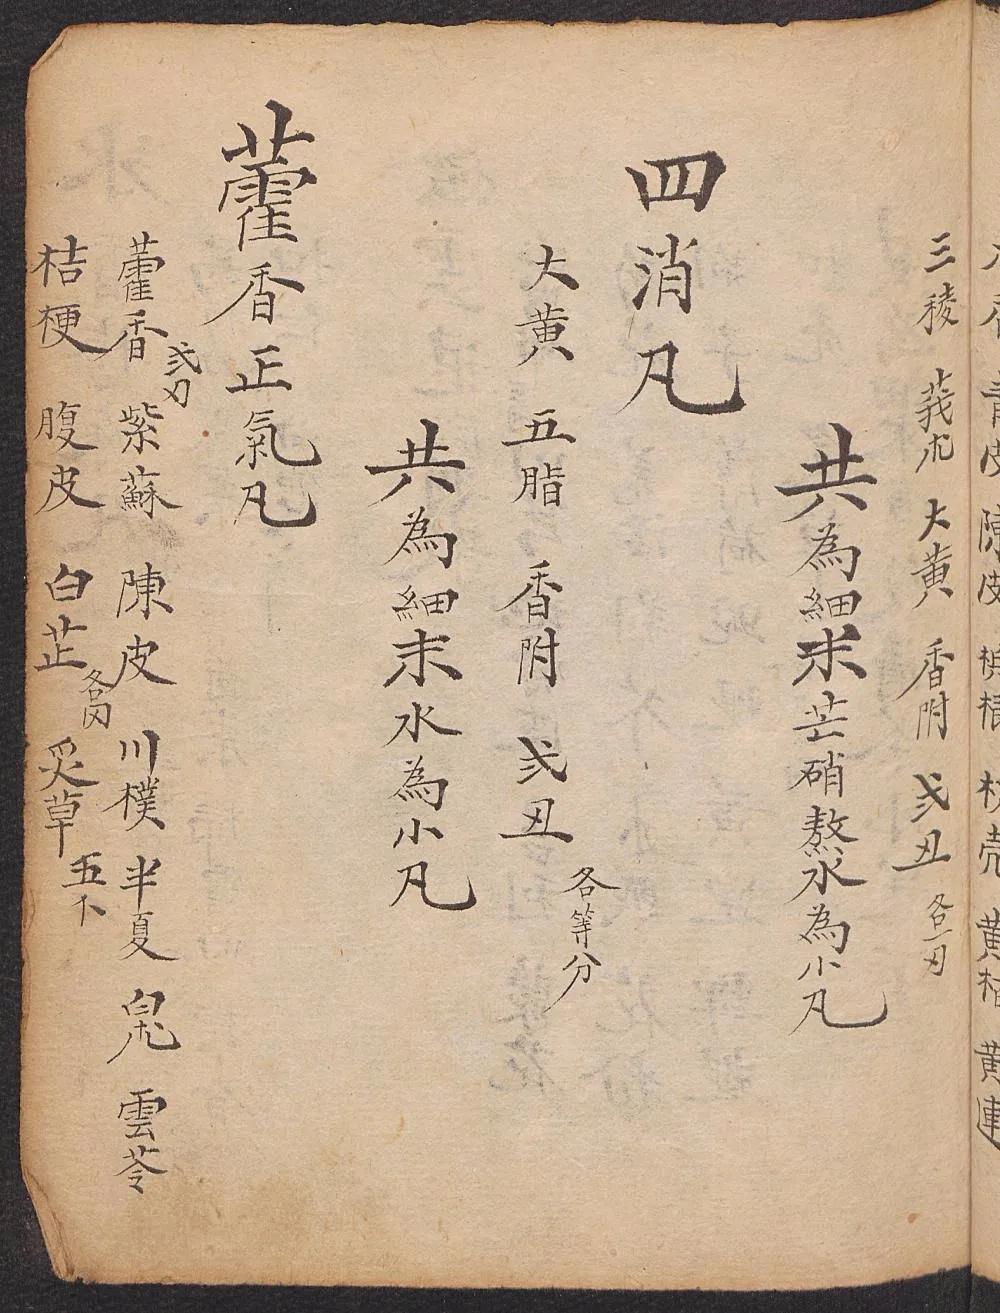 青皮 陳皮 枳壳 黄柏 黄連
三稜 莪朮 大黄 香附 弍丑 各二刃
共為細末芒硝熬水為小凡
四消凡
大黄 五脂 香附 弍丑 各等分
共為細末水為小凡
藿香正氣凡
藿香弍刃 紫蘇 陳皮 川樸 半夏 白朮 雲苓
桔梗 腹皮 白芷 炙草 五卜